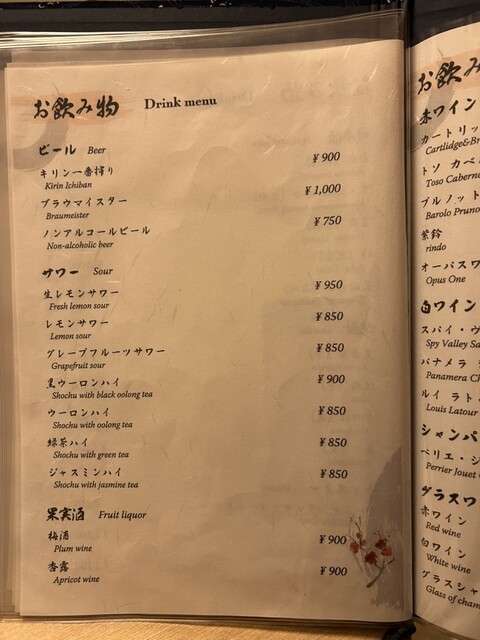 お飲み物 Drink menu
ビール Beer
キリン一番搾り ¥900
Kirin Ichiban
ブラウマイスター ¥1,000
Braumeister
ノンアルコールビール ¥750
Non-alcoholic beer
サワー Sour
生レモンサワー ¥950
Fresh lemon sour
レモンサワー ¥850
Lemon sour
グレープフルーツサワー ¥850
Grapefruit sour
黒ウーロンハイ ¥900
Shochu with black oolong tea
ウーロンハイ ¥850
Shochu with oolong tea
緑茶ハイ ¥850
Shochu with green tea
ジャスミンハイ ¥850
Shochu with jasmine tea
果実酒 Fruit liquor
梅酒 ¥900
Plum wine
杏露 ¥900
Apricot wine
お飲み
赤ワイン
カートリッ
Cartlidge&Br
トソ カベ
Toso Caberne
ブルノット
Barolo Pruno
紫鈴
rindo
オーパスワ
Opus One
白ワイン
スパイ・ヴ
Spy Valley Sa
パナメラ
Panamera Ch
ルイ ラト
Louis Latour
シャンパ
ペリエ・ジ
Perrier Jouet
グラスワ
赤ワイン
Red wine
白ワイン
White wine
グラスシャ
Glass of cham